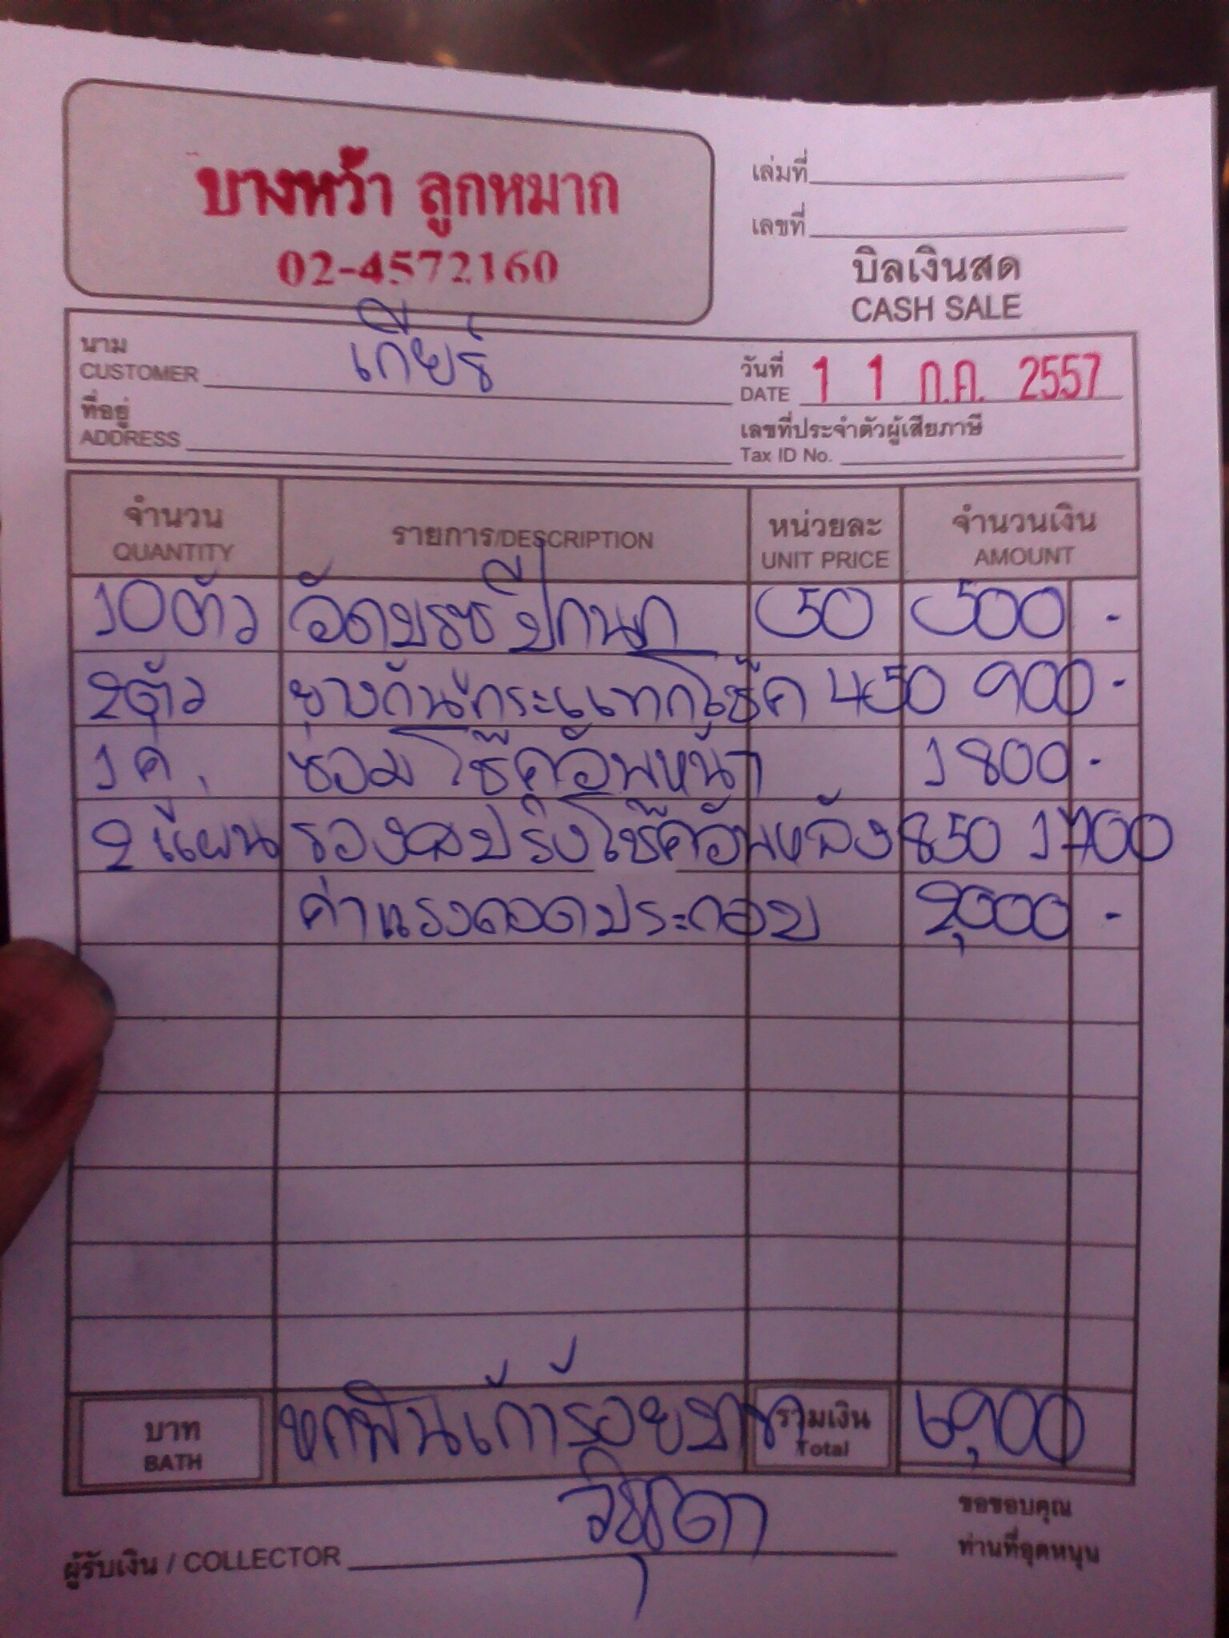 บางหว้า ลูกหมาก
02-4572160
เล่มที่
เลขที่
บิลเงินสด
CASH SALE
นาม
CUSTOMER เกียร์
วันที่
DATE 11 ก.ค. 2557
ที่อยู่
ADDRESS
เลขที่ประจำตัวผู้เสียภาษี
Tax ID No.
จำนวน QUANTITY รายการ/DESCRIPTION หน่วยละ UNIT PRICE จำนวนเงิน AMOUNT
10 ตัว อัดบูชปีกนก 50 500 -
2 ตัว ยางกันกระแทกโช๊ค 450 900 -
1 คู่ ซ่อมโช๊คอัพหน้า 1800 -
2 แผ่น รองสปริงโช๊คอัพหลัง 850 1700
ค่าแรงถอดประกอบ 2,000 -
บาท BATH หกพันเก้าร้อยบาท รวมเงิน Total 6,900
ผู้รับเงิน / COLLECTOR
ขอขอบคุณ
ท่านที่อุดหนุน